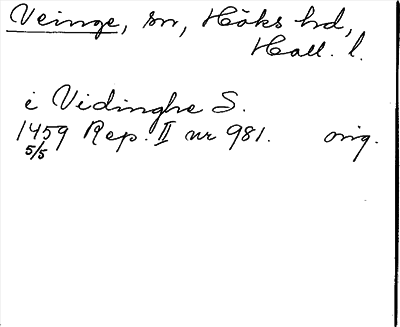 Veinge, sn, Höks hd,
Hall. l.
i Vidinghe S.
1459 Rep. II nr 981. orig.
5/5